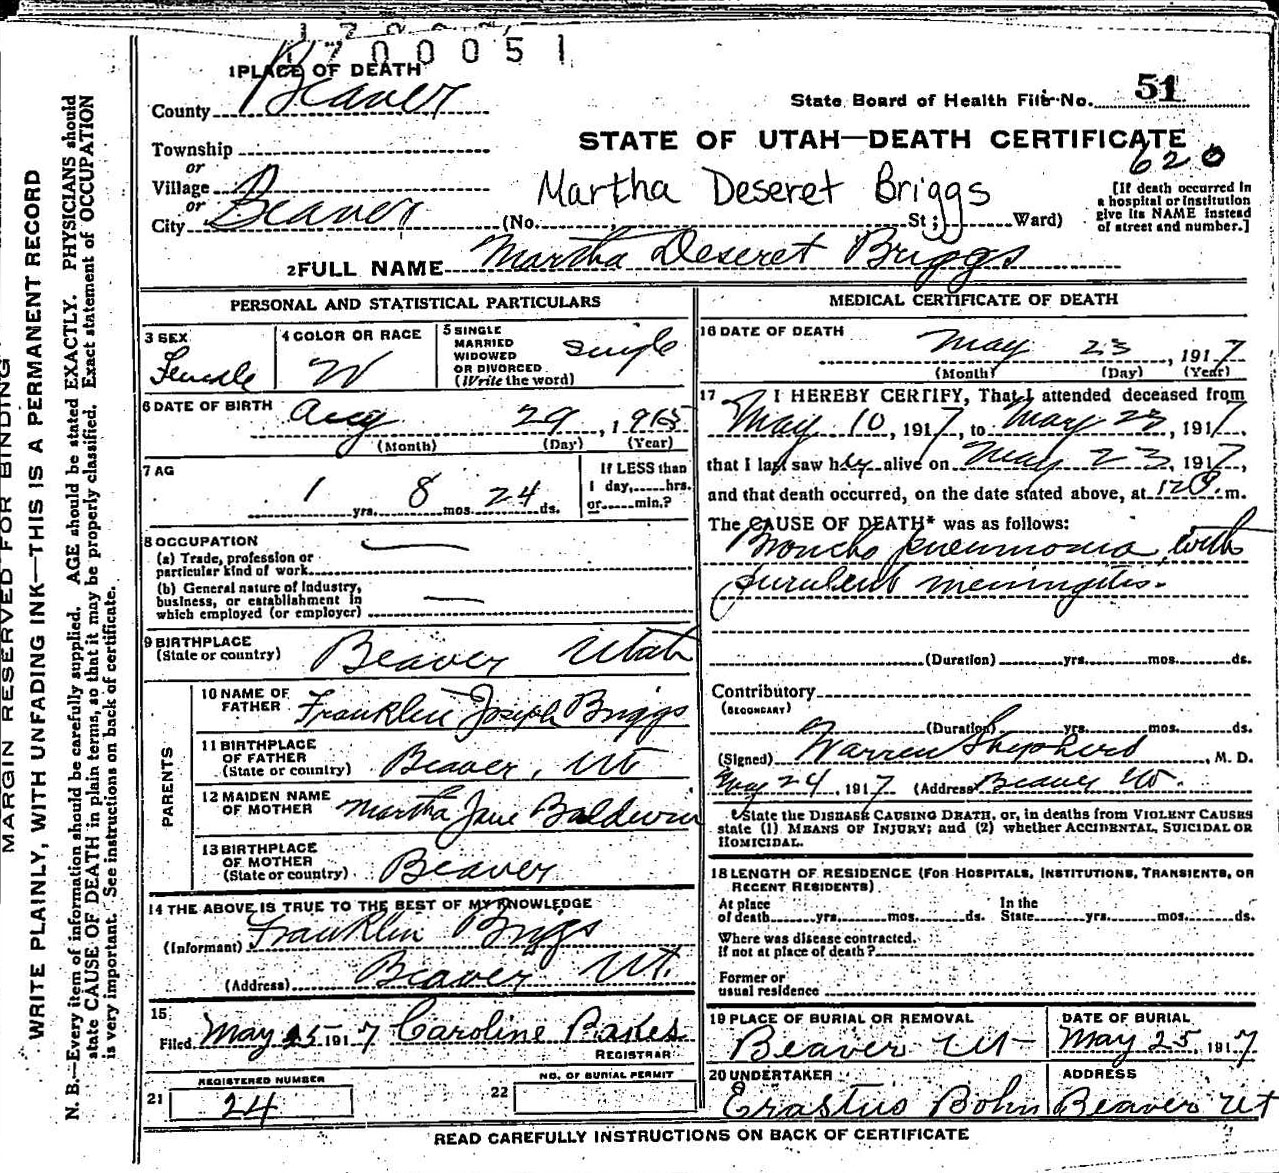 1700051
1 PLACE OF DEATH
County Beaver
State Board of Health File No. 51
STATE OF UTAH—DEATH CERTIFICATE
620
Township
or
Village
or
City Beaver
Martha Deseret Briggs
(No. St; Ward)
[If death occurred in
a hospital or institution
give its NAME instead
of street and number.]
2 FULL NAME Martha Deseret Briggs
PERSONAL AND STATISTICAL PARTICULARS
3 SEX
Female
4 COLOR OR RACE
W
5 SINGLE
MARRIED
WIDOWED
OR DIVORCED
(Write the word)
single
6 DATE OF BIRTH Aug 29, 1915
(Month) (Day) (Year)
7 AG
1 yrs. 8 mos. 24 ds.
If LESS than
1 day, hrs.
or min.?
8 OCCUPATION
(a) Trade, profession or
particular kind of work
(b) General nature of Industry,
business, or establishment in
which employed (or employer)
9 BIRTHPLACE
(State or country) Beaver Utah
PARENTS
10 NAME OF
FATHER Franklin Joseph Briggs
11 BIRTHPLACE
OF FATHER
(State or country) Beaver, Ut
12 MAIDEN NAME
OF MOTHER Martha Jane Baldwin
13 BIRTHPLACE
OF MOTHER
(State or country) Beaver
14 THE ABOVE IS TRUE TO THE BEST OF MY KNOWLEDGE
(Informant) Franklin Briggs
(Address) Beaver Ut.
15
Filed May 25 1917 Caroline
REGISTRAR
REGISTERED NUMBER
21 24
NO. OF BURIAL PERMIT
22
MEDICAL CERTIFICATE OF DEATH
16 DATE OF DEATH
May 23, 1917
(Month) (Day) (Year)
17 I HEREBY CERTIFY, That I attended deceased from
May 10, 1917, to May 23, 1917,
that I last saw her alive on May 23, 1917,
and that death occurred, on the date stated above, at m.
The CAUSE OF DEATH* was as follows:
Broncho pneumonia with
purulent meningitis.
(Duration) yrs. mos. ds.
Contributory
(SECONDARY)
(Duration) yrs. mos. ds.
(Signed) Warren Shepherd, M. D.
May 24, 1917 (Address) Beaver Ut.
*State the DISEASE CAUSING DEATH, or, in deaths from VIOLENT CAUSES
state (1) MEANS OF INJURY; and (2) whether ACCIDENTAL, SUICIDAL OR
HOMICIDAL.
18 LENGTH OF RESIDENCE (FOR HOSPITALS, INSTITUTIONS, TRANSIENTS, OR
RECENT RESIDENTS)
At place
of death yrs. mos. ds.
In the
State yrs. mos. ds.
Where was disease contracted,
If not at place of death?
Former or
usual residence
19 PLACE OF BURIAL OR REMOVAL
Beaver Ut
DATE OF BURIAL
May 25, 1917
20 UNDERTAKER
Erastus Bohn
ADDRESS
Beaver Ut
READ CAREFULLY INSTRUCTIONS ON BACK OF CERTIFICATE
MARGIN RESERVED FOR BINDING
WRITE PLAINLY, WITH UNFADING INK—THIS IS A PERMANENT RECORD
N. B.—Every item of information should be carefully supplied. AGE should be stated EXACTLY. PHYSICIANS should
state CAUSE OF DEATH in plain terms, so that it may be properly classified. Exact statement of OCCUPATION
is very important. See instructions on back of certificate.